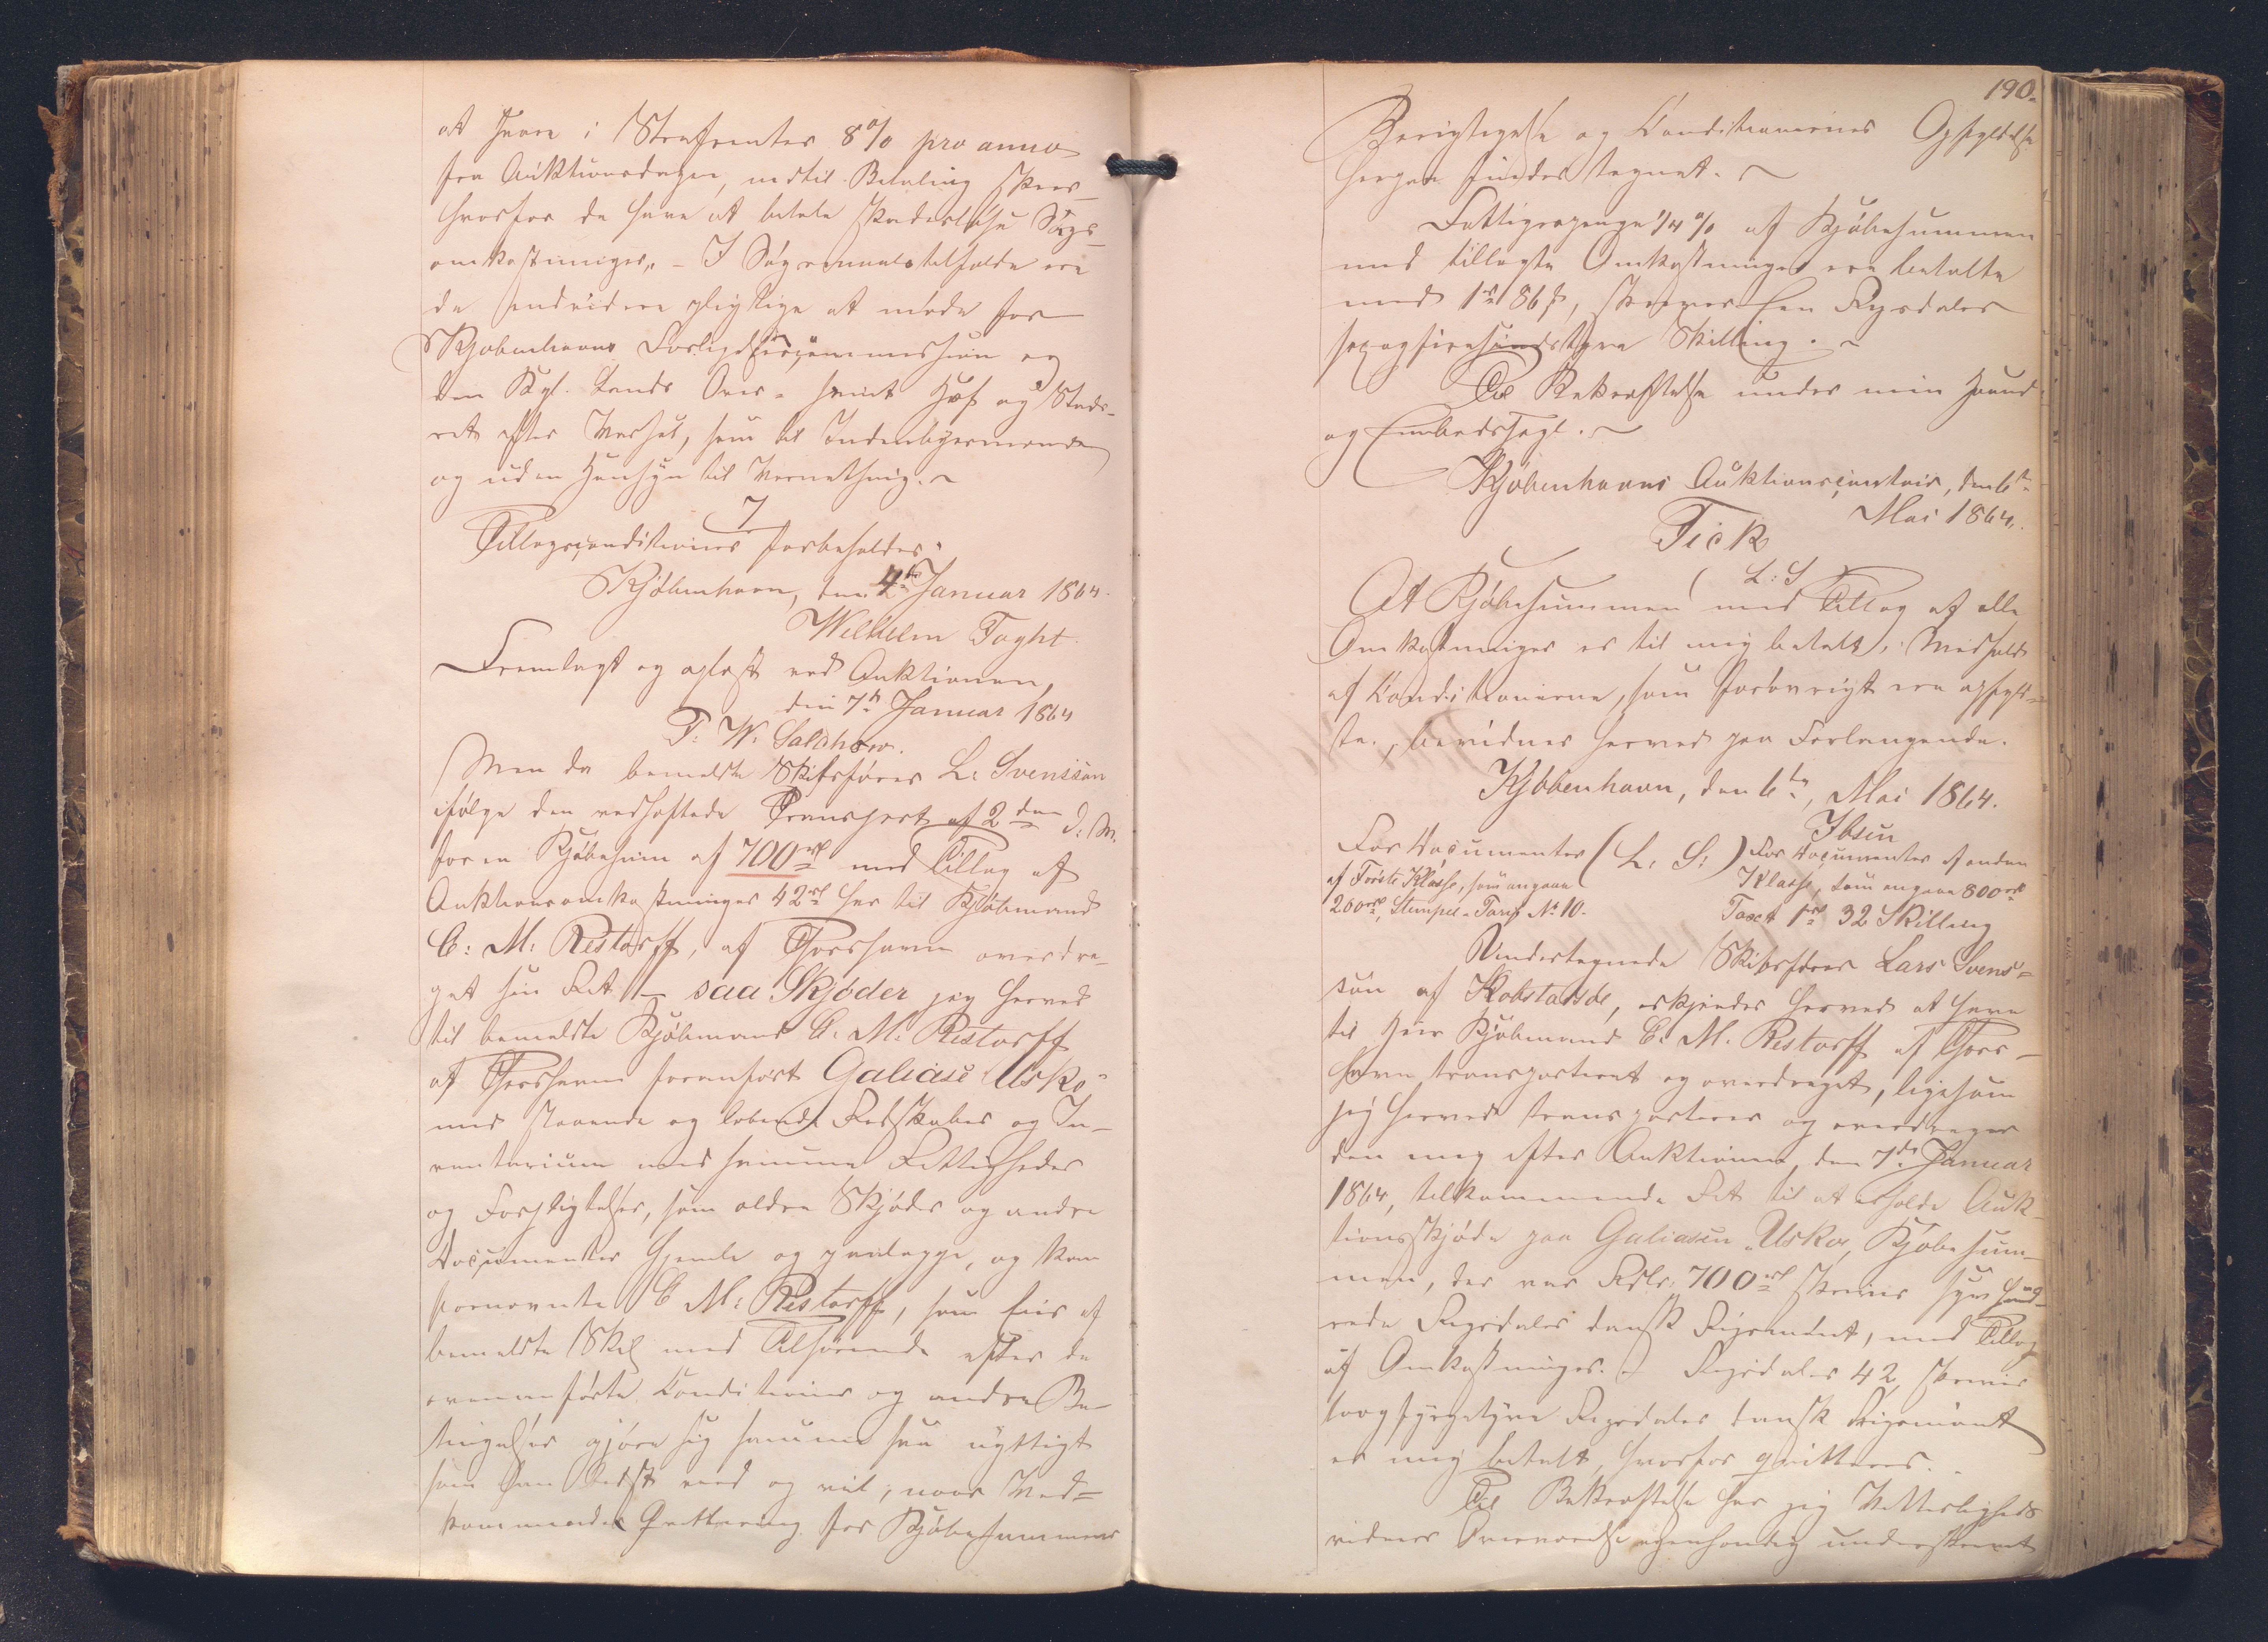 at svare i Strafrenter 8% pro anno
fra Auktionsdagen, indtil Betaling skeer
hvorfor de have at betale skadesløse Søgs-
omkostninger. – I Søgsmaalstilfælde ere
de endvidere pligtige at møde for
Kjøbenhavns Forligelsescommission og
den Kgl. Lands Over- samt Hof og Stads-
ret efter Varsel, som til Indenbyesmænd
og uden Hensyn til Værnething.
7
Tillægsconditioner forbeholdes.
Kjøbenhavn, den 4de Januar 1864.
Wilhelm Foght.
Fremlagt og oplæst ved Auktionen,
den 7de Januar 1864
F. W. Salchow.
Men da bemeldte Skibsfører L. Svensson
ifølge den vedhæftede Transport af 2den d. M.
for en Kjøbesum af 700 rd med Tillæg af
Auktionsomkostninger 42 rd har til Kjøbmand
C: M: Restorff, af Thorshavn overdra-
get sin Ret – saa Skjøder jeg herved
til bemeldte Kjøbmand C. M. Restorff
af Thorshavn fornævnte Galiase Uskø
med staaende og løbende Redskaber og In-
ventarium med samme Rettigheder
og Forpligtelser, som ældre Skjøder og andre
Documenter hjemle og paalægge, og kan
fornævnte C M: Restorff, som Eier af
bemeldte Skib med Tilhørende efter de
ovenanførte Conditioner og andre Be-
tingelser gjøre sig samme saa nyttigt
som han bedst veed og vil, naar Ved-
kommendes Qvittering for Kjøbesummens
190.
Berigtigelse og Conditionernes Opfyldelse
herpaa findes tegnet.
Fattigpenge 1/4% af Kjøbesummen
med tillagte Omkostninger ere betalte
med 1 rd 86 s, skriver Een Rigsdaler
sex og firesindstyve Skilling.
Til Bekræftelse under min Haand
og Embedssegl.
Kjøbenhavns Auktionscontoir, den 6te
Mai 1864.
Fick
( L: S
At Kjøbesummen med Tillæg af alle
Omkostninger er til mig betalt, i Medhold
af Conditionerne, som forøvrigt ere opfyld-
te, bevidnes herved paa Forlangende.
Kjøbenhavn, den 6te, Mai 1864.
Ibsen
( L: S: )
For Documenter
af Første Klasse, som angaae
200 rd, Stempel-Tarif No 10.
For Documenter af anden
Klasse, som angaae 800 rd
Taxt 1 rd 32 Skilling
Undertegnede Skibsfører Lars Svens-
son af , erkjender herved at have
til Herr Kjøbmand C. M. Restorff af Thors-
havn transporteret og overdraget, ligesom
jeg herved transporterer og overdrager
den mig efter Auktionen den 7de Januar
1864, tilkommende Ret til at erholde Auk-
tionsskjøde paa Galiasen "Uskø", Kjøbesum-
men, der var Rdlr. 700 rd skriver syv hund-
rede Rigsdaler dansk Rigsmønt, med Tillæg
af Omkostninger. – Rigsdaler 42, skriver
toogfyrgetyve Rigsdaler dansk Rigsmønt
er mig betalt, hvorfor qvitteres.
Til Bekræftelse har jeg Vitterligheds
vidners Overværelse egenhændig underskrevet